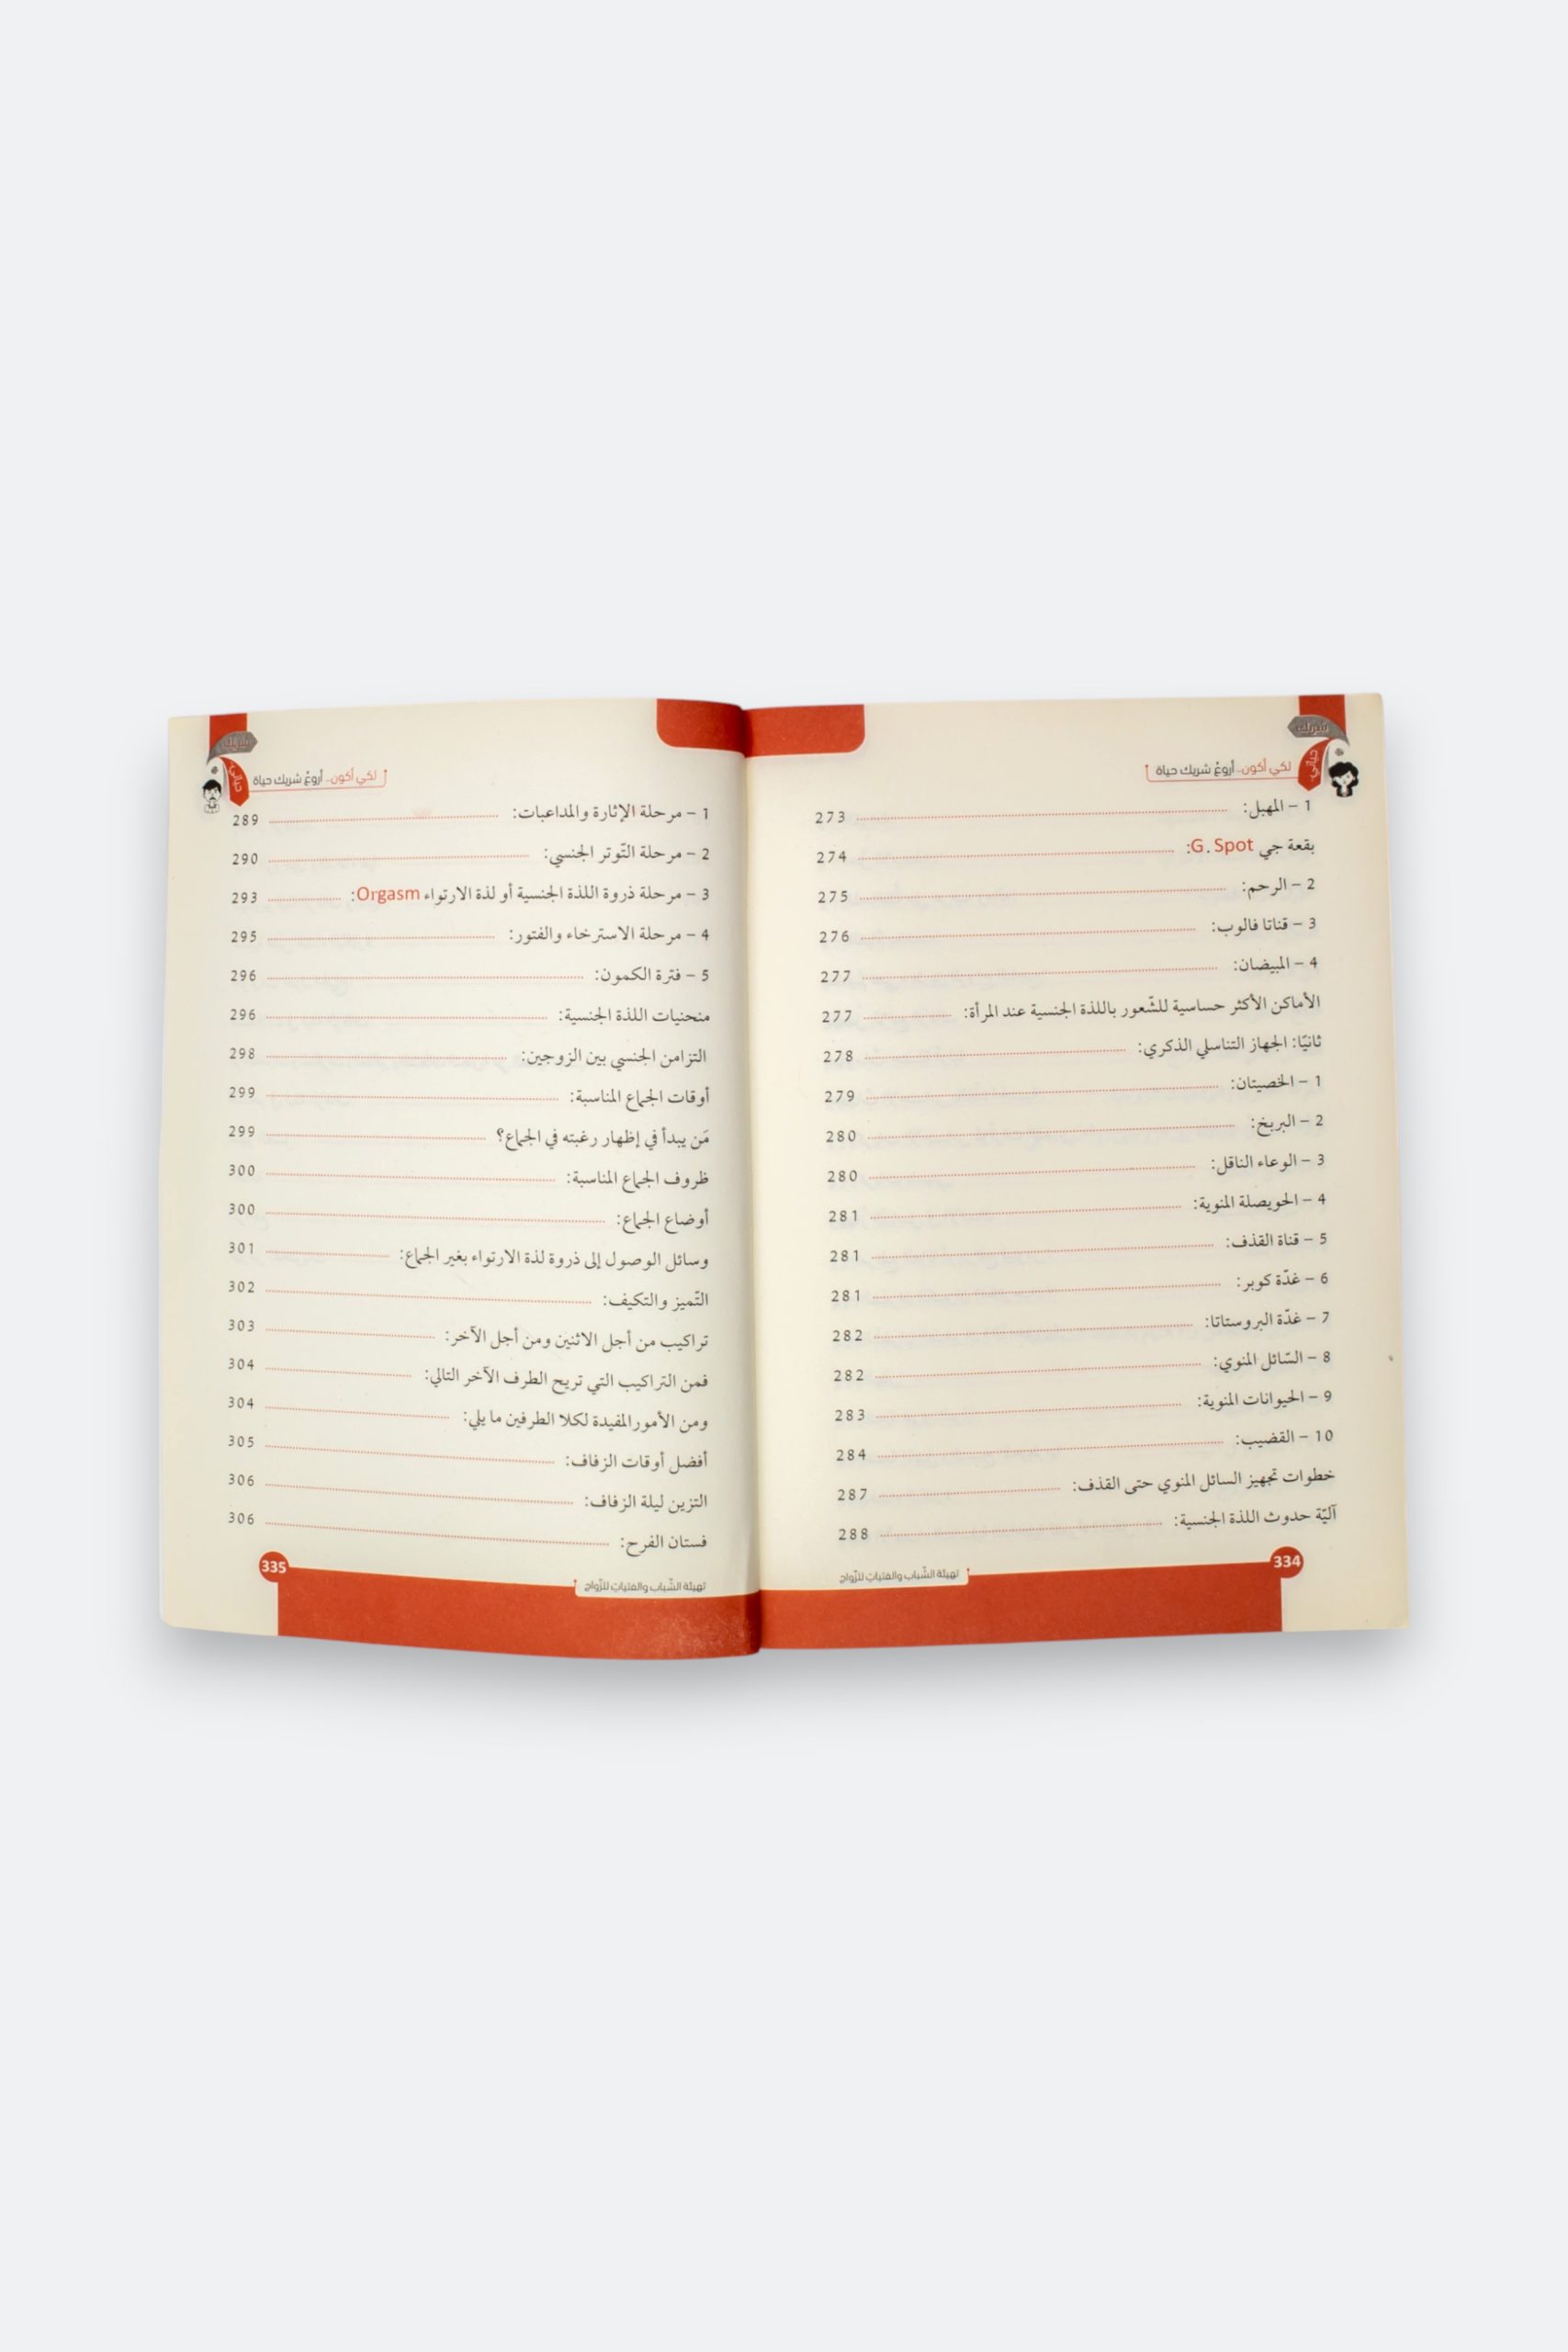 شريك
حياتي
لكي أكون.. أروع شريك حياة
1 – المهبل: 273
بقعة جي G. Spot: 274
2 – الرحم: 275
3 – قناتا فالوب: 276
4 – المبيضان: 277
الأماكن الأكثر حساسية للشّعور باللذة الجنسية عند المرأة: 277
ثانيًا: الجهاز التناسلي الذكري: 278
1 – الخصيتان: 279
2 – البربخ: 280
3 – الوعاء الناقل: 280
4 – الحويصلة المنوية: 281
5 – قناة القذف: 281
6 – غدّة كوبر: 281
7 – غدّة البروستاتا: 282
8 – السّائل المنوي: 282
9 – الحيوانات المنوية: 283
10 – القضيب: 284
خطوات تجهيز السائل المنوي حتى القذف: 287
آليّة حدوث اللذة الجنسية: 288
334
تهيئة الشّباب والفتيات للزّواج
شريك
حياتي
لكي أكون.. أروع شريك حياة
1 – مرحلة الإثارة والمداعبات: 289
2 – مرحلة التّوتر الجنسي: 290
3 – مرحلة ذروة اللذة الجنسية أو لذة الارتواء Orgasm: 293
4 – مرحلة الاسترخاء والفتور: 295
5 – فترة الكمون: 296
منحنيات اللذة الجنسية: 296
التزامن الجنسي بين الزوجين: 298
أوقات الجماع المناسبة: 299
مَن يبدأ في إظهار رغبته في الجماع؟ 299
ظروف الجماع المناسبة: 300
أوضاع الجماع: 300
وسائل الوصول إلى ذروة لذة الارتواء بغير الجماع: 301
التّميز والتكيف: 302
تراكيب من أجل الاثنين ومن أجل الآخر: 303
فمن التراكيب التي تريح الطرف الآخر التالي: 304
ومن الأمور المفيدة لكلا الطرفين ما يلي: 304
أفضل أوقات الزفاف: 305
التزين ليلة الزفاف: 306
فستان الفرح: 306
335
تهيئة الشّباب والفتيات للزّواج